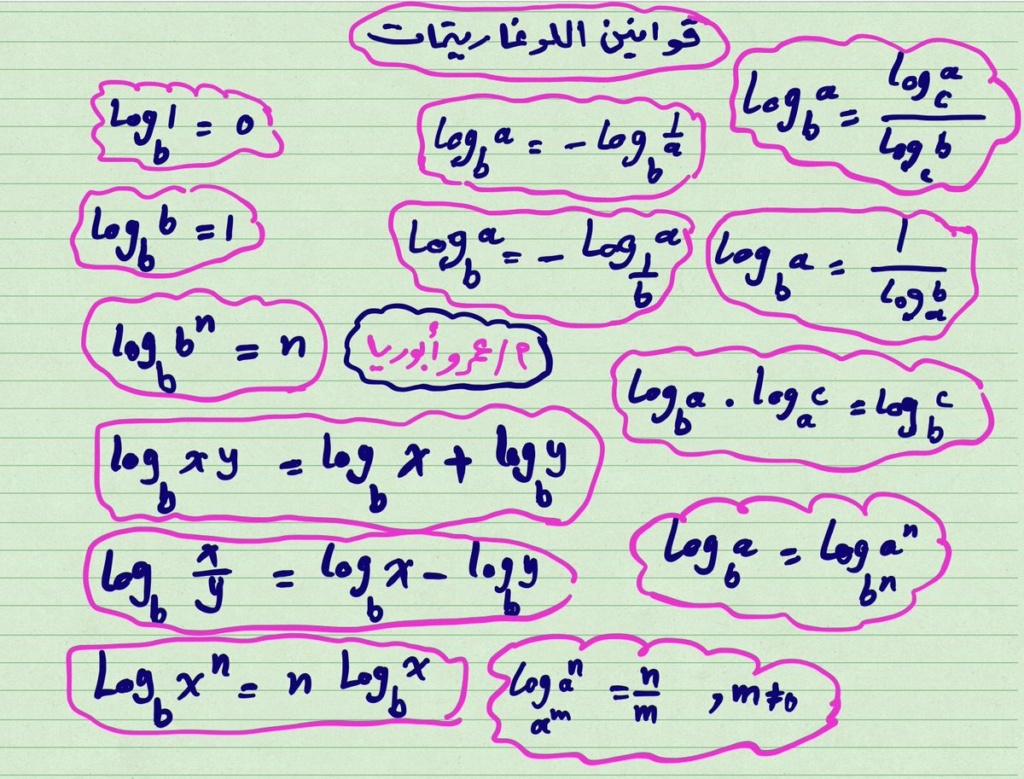 قوانين اللوغاريتمات
log_b 1 = 0
log_b a = - log_b 1/a
log_b a = log_c a / log_c b
log_b b = 1
log_b a = - log_{1/b} a
log_b a = 1 / log_a b
log_b b^n = n
م/عمرو أبوريا
log_b a . log_a c = log_b c
log_b xy = log_b x + log_b y
log_b x/y = log_b x - log_b y
log_b a = log_{b^n} a^n
log_b x^n = n log_b x
log_{a^m} a^n = n/m , m≠0